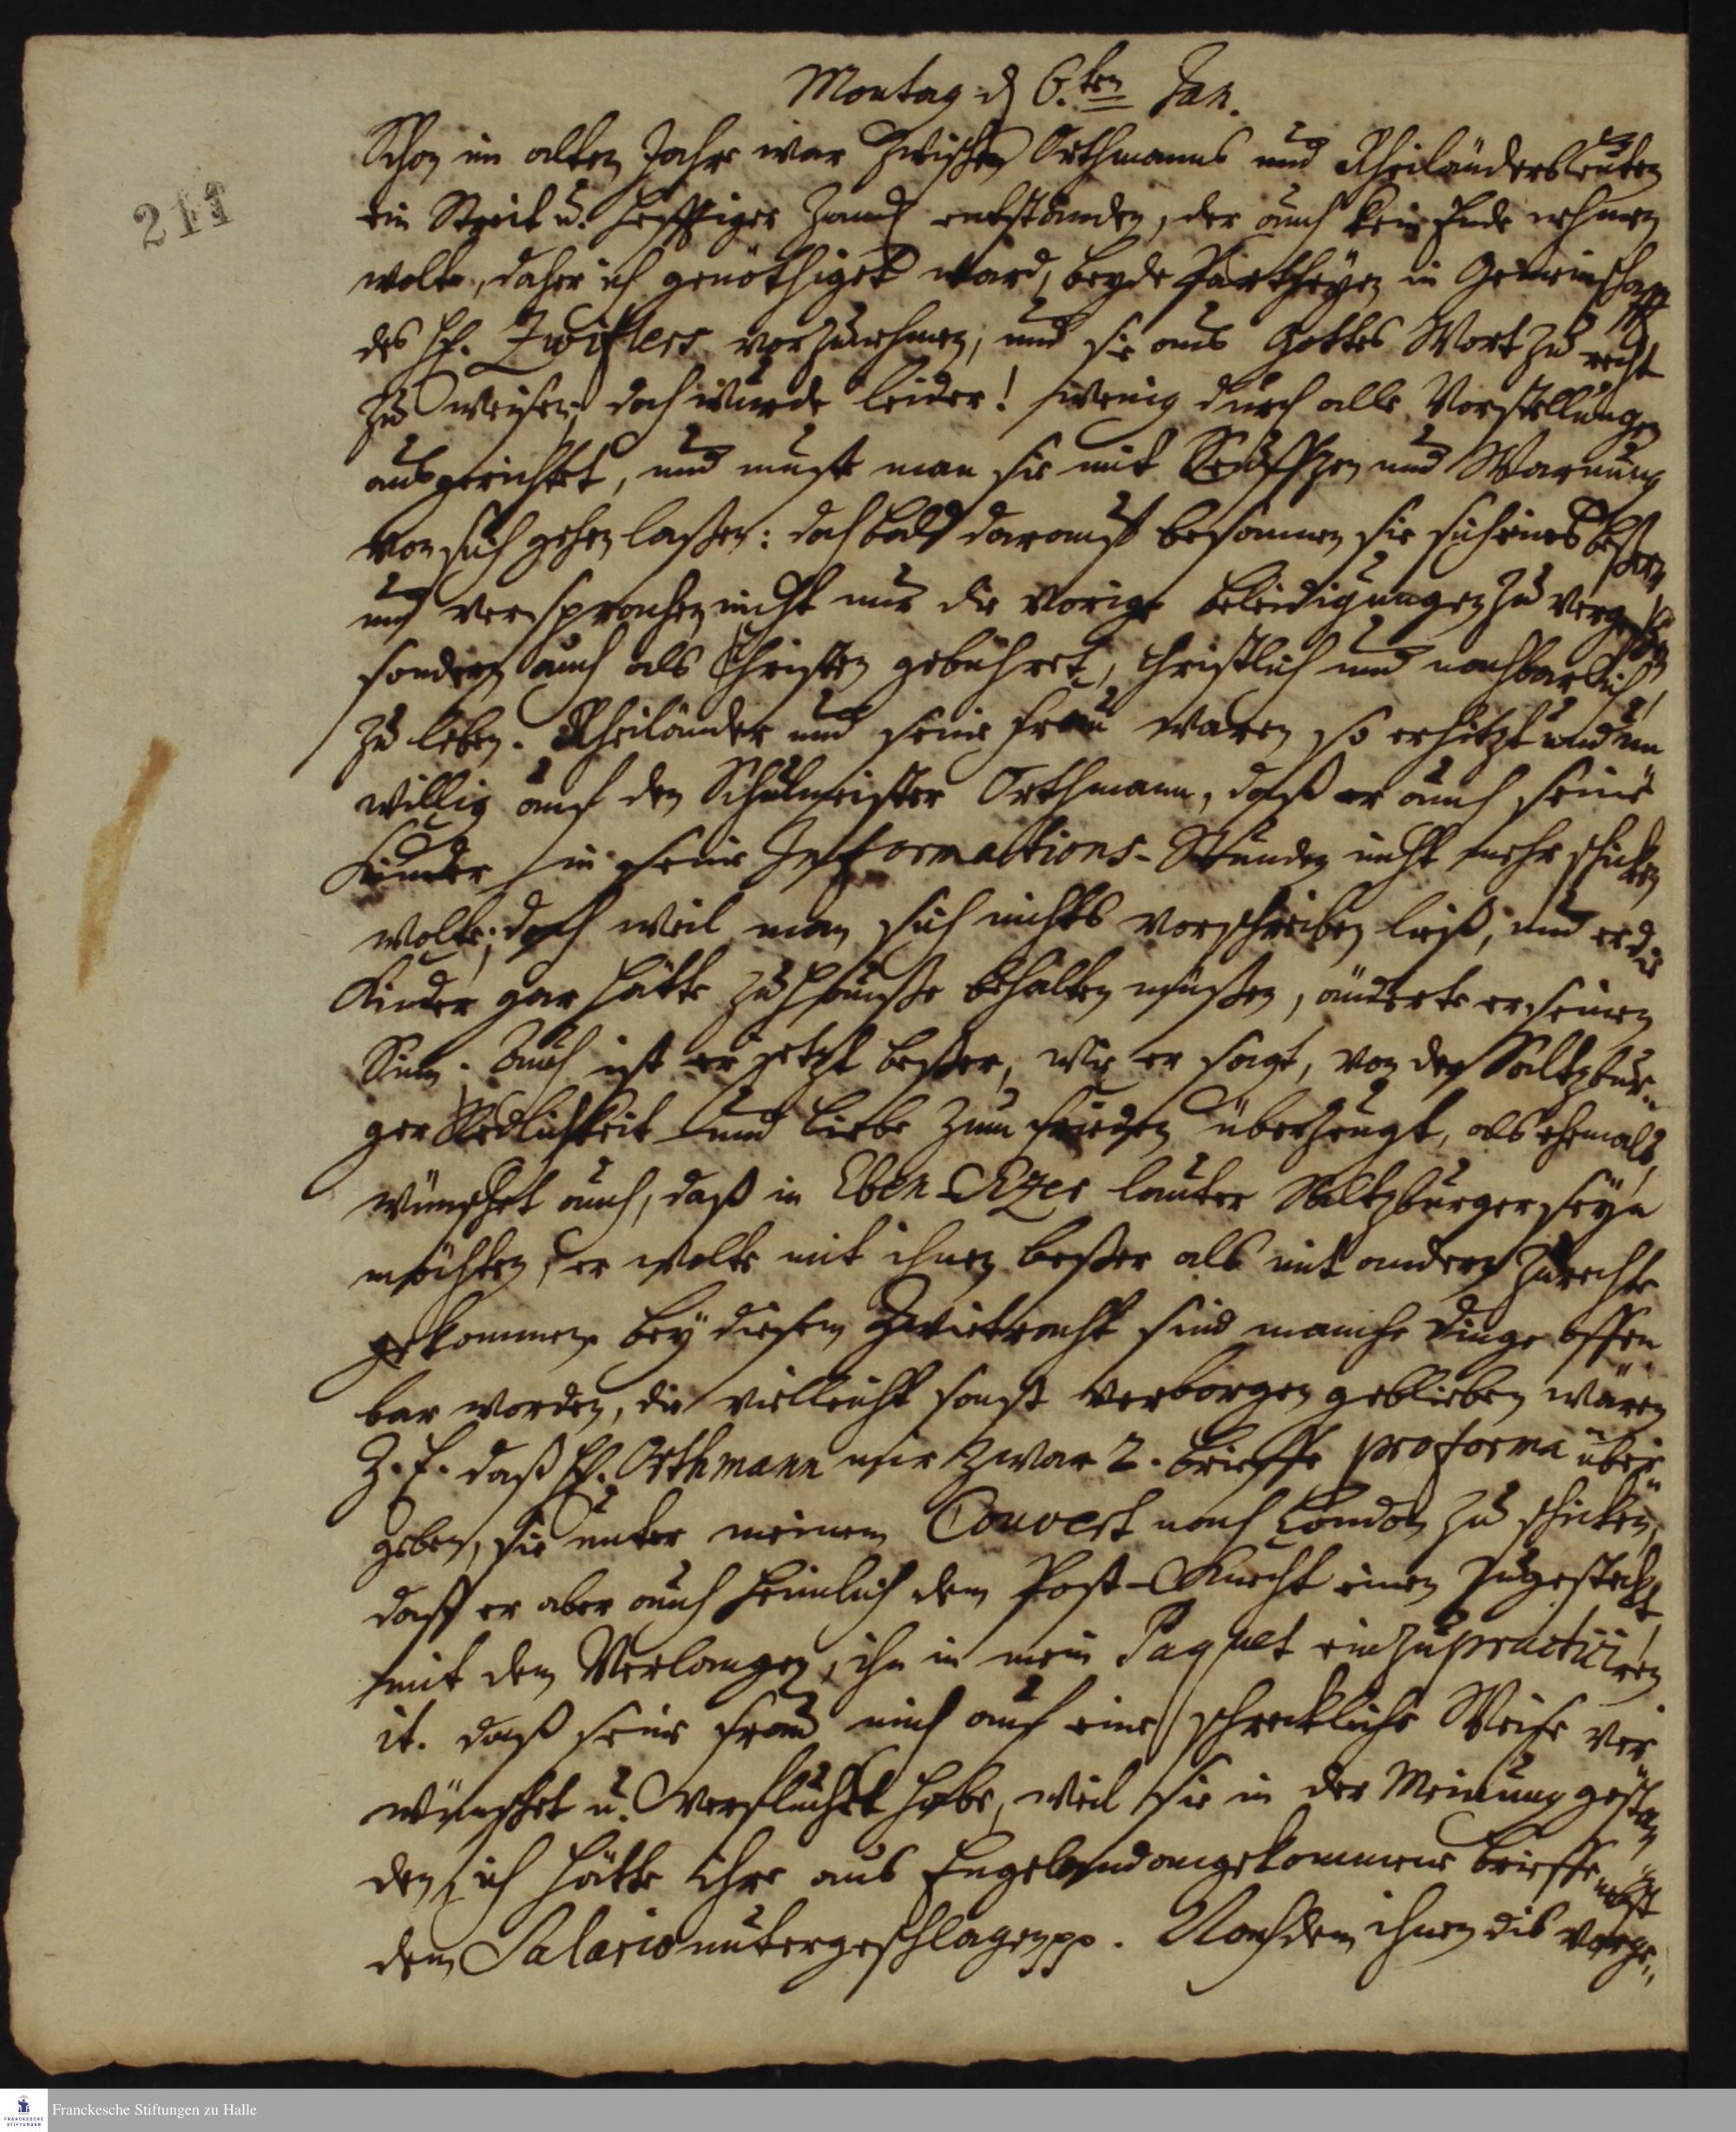 Montag d 6.ten Jan.
211
Schon im alten Jahr war zwischen Orthmanns und Rheiländers Leuten
ein Streit u. hefftiger Zanck entstanden, der auch kein Ende nehmen
wolte, daher ich genöthiget ward, beyde Partheyen in Gemeinschafft
des H. Zwiflers vorzunehmen, und sie aus Gottes Wort zu recht
zu weisen, doch wurde leider! wenig durch alle Vorstellungen
ausgerichtet, und muste man sie mit Seuffzen und Warnung
von sich gehen laßen: doch bald darauf besonnen sie sich eines beßern
und versprachen nicht nur die vorige Beleidigungen zu vergeßen
sondern auch als Christen gebühret, christlich und nachbarlich
zu leben. Rheiländer und seine Frau waren so erhitzt und un
willig auf den Schulmeister Orthmann, daß er auch seine
Kinder in seine Informations-Stunden nicht mehr schicken
wolte; doch weil man sich nichts vorschreiben ließ, und er die
Kinder gar hätte zu Hauße behalten müßen, änderte er seinen
Sinn. Auch ist er jetzt beßer, wie er sagt, von der Saltzbur-
ger Redlichkeit und Liebe zum Frieden überzeugt, als ehemals,
wünschet auch, daß in Eben Ezer lauter Saltzburger seyn
möchten, er wolte mit ihnen beßer als mit andern zurechte
gekommen. Bey diesem Zwietracht sind manche Dinge offen
bar worden, die vielleicht sonst verborgen geblieben wären
Z. E. daß H. Orthmann mir zwar 2. Brieffe pro forma über
geben, sie unter meinem Couvert nach London zu schicken,
daß er aber auch heimlich dem Post-Knecht einen zugesteckt,
mit dem Verlangen, ihn in mein Paquet einzupracticiren
it. daß seine Frau mich auf eine schreckliche Weise ver-
wünschet u. verfluchet habe, weil sie in der Meinung gestan
den, ich hätte ihre aus Engeland angekommene Brieffe nebst
dem Salario untergeschlagen pp. Nachdem ihnen dis vorge-
Franckesche Stiftungen zu Halle
FRANCKESCHE
STIFTUNGEN